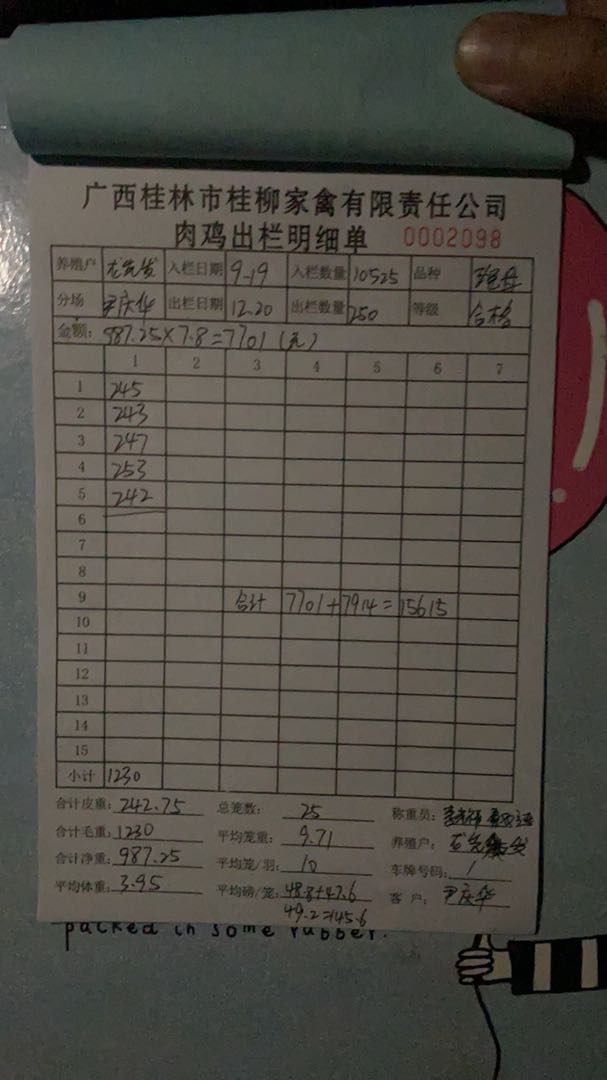 广西桂林市桂柳家禽有限责任公司
肉鸡出栏明细单 0002098
养殖户 龙先发 入栏日期 9-19 入栏数量 10525 品种
分场 尹庆华 出栏日期 12.20 出栏数量 250 等级 合格
金额: 987.25×7.8=7701(元)
1 2 3 4 5 6 7
1 245
2 243
3 247
4 253
5 242
6
7
8
9 合计 7701+7914=15615
10
11
12
13
14
15
小计 1230
合计皮重: 242.75 总笼数: 25 称重员:
合计毛重: 1230 平均笼重: 9.71 养殖户: 龙先发
合计净重: 987.25 平均笼/羽: 10 车牌号码: /
平均体重: 3.95 平均磅/笼: 48.8+47.6 客户: 尹庆华
49.2=145.6
packed in some rubber.